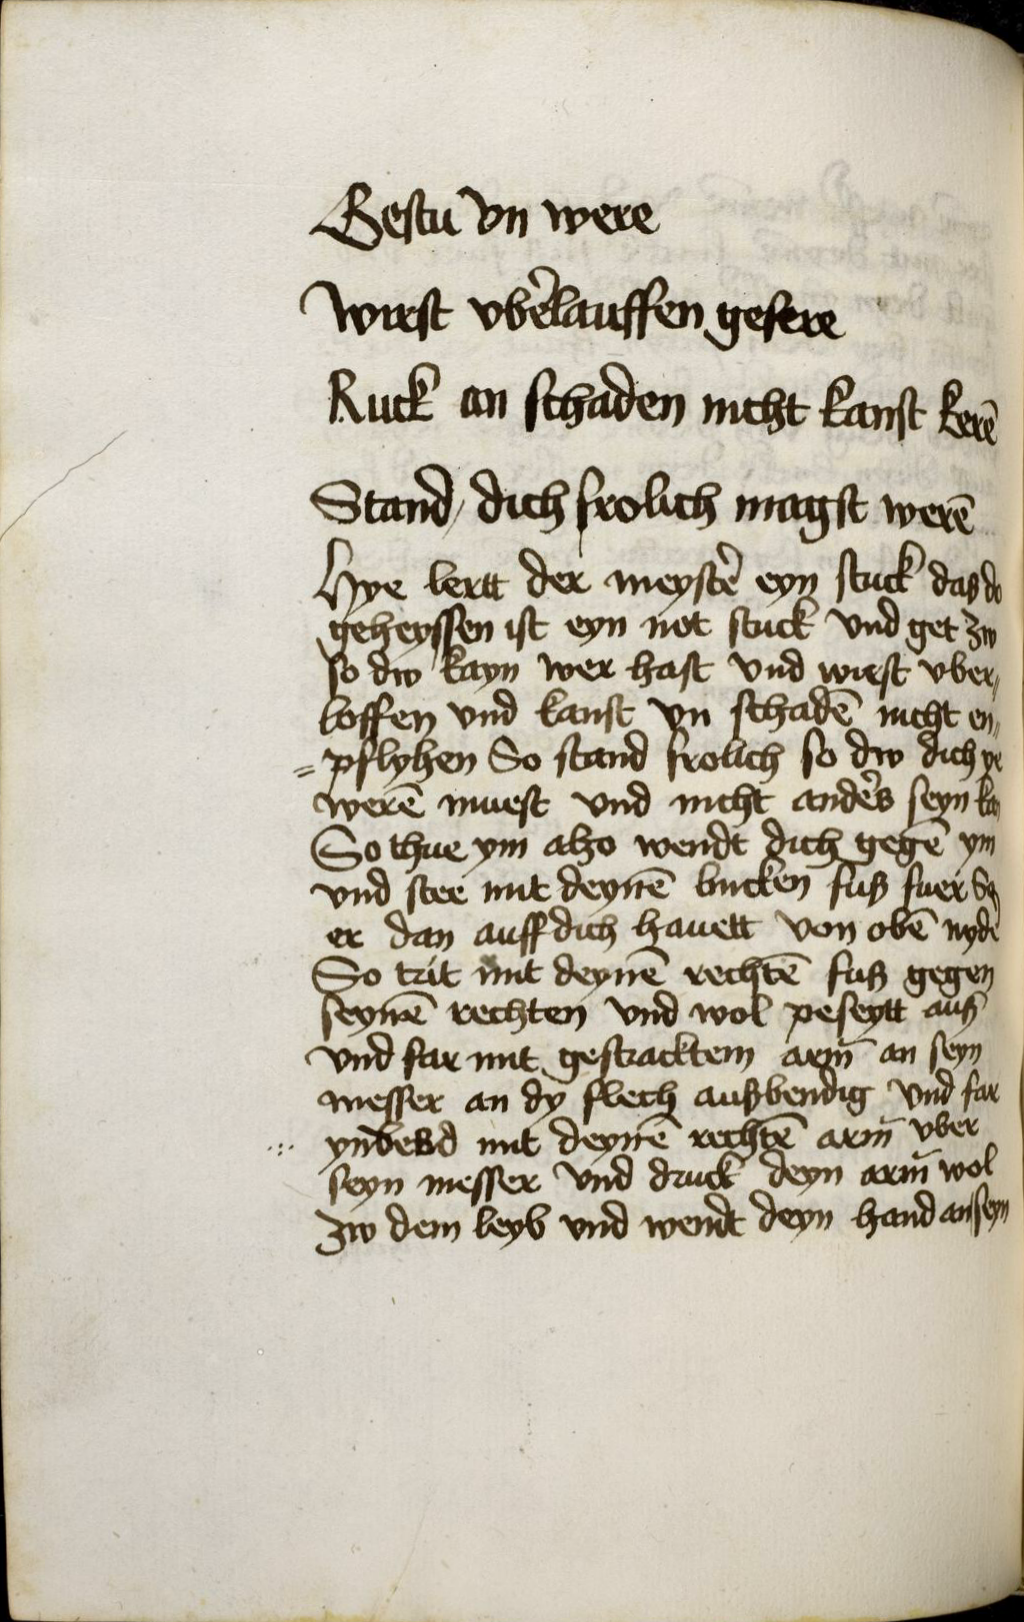 Gestu vn were
Wirst vberlauffen gefere
Ruck an schaden nicht kanst kerē
Stand dich frolich magst werē
Hye lertt der meyster eyn stuck das do
geheyssen ist eyn not stuck vnd get zw
so dw kayn wer hast vnd wirst vber,,
loffen vnd kanst vn schadē nicht en,,
=pflyhen So stand frolich so dw dich ye
werē muest vnd nicht anders seyn kan
So thue ym also wendt dich gegē ym
vnd stee mit deynē lincken fuß fuer So
er dan auff dich hauett von obē nyder
So trit mit deynē rechtē fuß gegen
seynē rechten vnd wol peseytt auß
vnd far mit gestracktem arm̄ an seyn
messer an dy flech außbendig vnd far
ynbendig mit deynē rechtē arm̄ vber
seyn messer vnd druck deyn arm̄ wol
zw dem leyb vnd wendt deyn hand an seyn